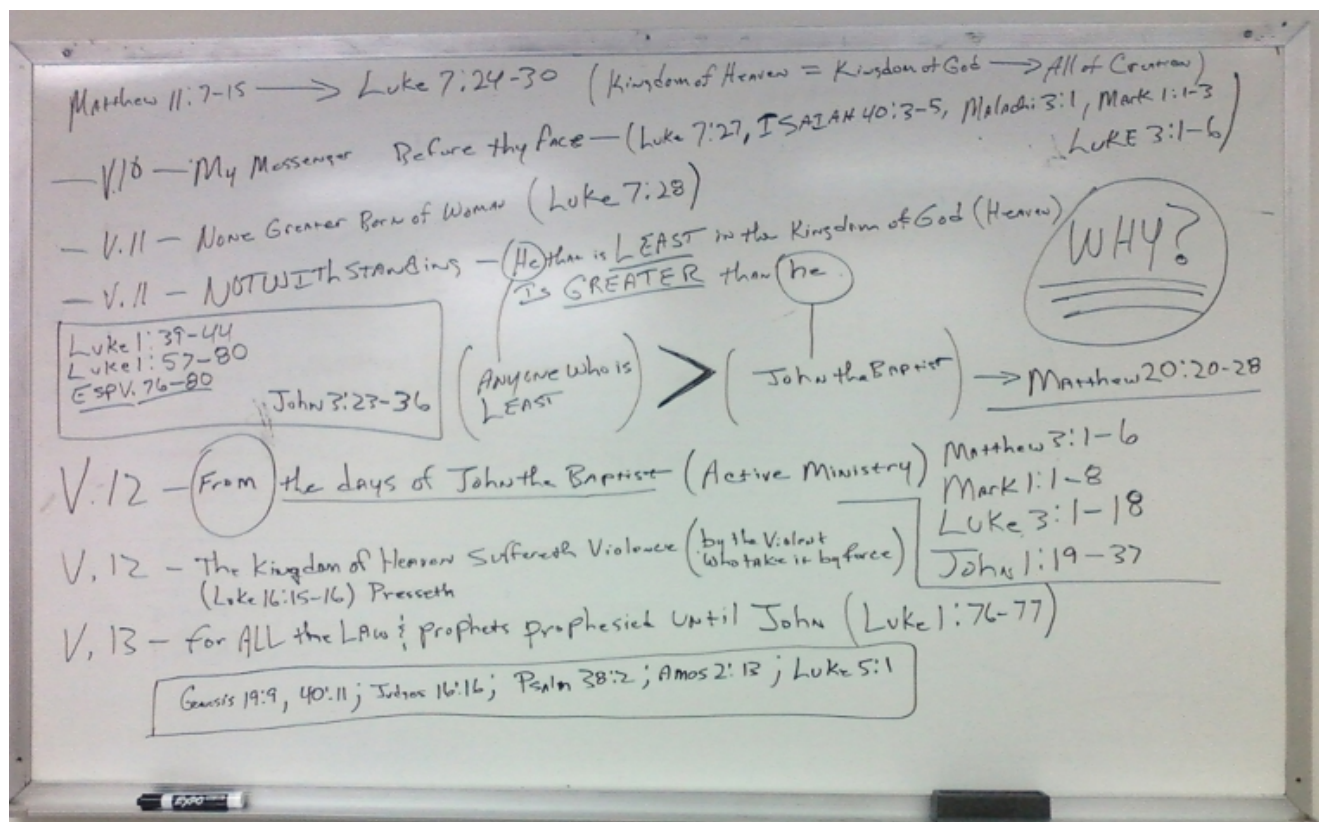 Matthew 11:7-15 → Luke 7:24-30 (Kingdom of Heaven = Kingdom of God → All of Creation)
— V.10 — My Messenger Before thy face — (Luke 7:27, ISAIAH 40:3-5, Malachi 3:1, Mark 1:1-3
LUKE 3:1-6)
— V.11 — None Greater Born of Woman (Luke 7:28)
— V.11 — NOTWITHSTANDING — He that is LEAST in the Kingdom of God (Heaven)
IS GREATER than he.
WHY?
Luke 1:39-44
Luke 1:57-80
ESP V. 76-80
John 3:23-36
(ANYONE who is LEAST) > (John the Baptist) → Matthew 20:20-28
V.12 — From the days of John the Baptist (Active Ministry)
Matthew 3:1-6
Mark 1:1-8
Luke 3:1-18
John 1:19-37
V.12 — The Kingdom of Heaven Suffereth Violence (by the Violent who take it by force)
(Luke 16:15-16) Presseth
V.13 — for ALL the LAW & prophets prophesied until John (Luke 1:76-77)
Genesis 19:9, 40:11; Judges 16:16; Psalm 38:2; Amos 2:13; Luke 5:1
EXPO